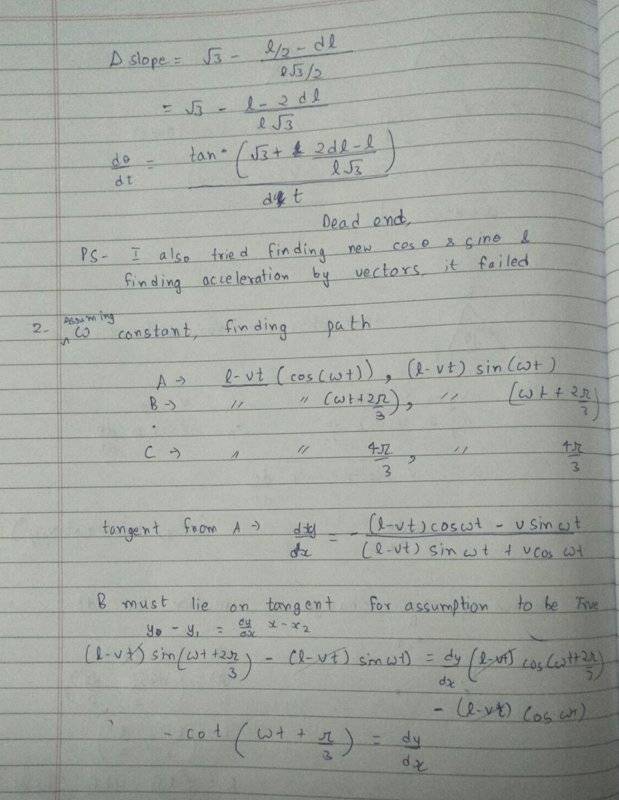 Δ slope = √3 - (l/2 - dl)/(l√3/2)
= √3 - (l - 2 dl)/(l√3)
dθ/dt = tan⁻ (√3 + (2dl - l)/(l√3)) / t
Dead end,
PS- I also tried finding new cosθ & sinθ &
finding acceleration by vectors, it failed
2- Assuming ω constant, finding path
A → l-vt (cos(ωt)), (l-vt) sin(ωt)
B → " " (ωt + 2π/3), " (ωt + 2π/3)
C → " " 4π/3, " 4π/3
tangent from A → dy/dx = - ((l-vt) cosωt - v sinωt)/((l-vt) sin ωt + v cos ωt)
B must lie on tangent for assumption to be true
y₀ - y₁ = dy/dx x - x₂
(l-vt) sin(ωt + 2π/3) - (l-vt) sin ωt) = dy/dx (l-vt) cos(ωt + 2π/3)
- (l-vt) cos ωt)
- cot (ωt + π/3) = dy/dx